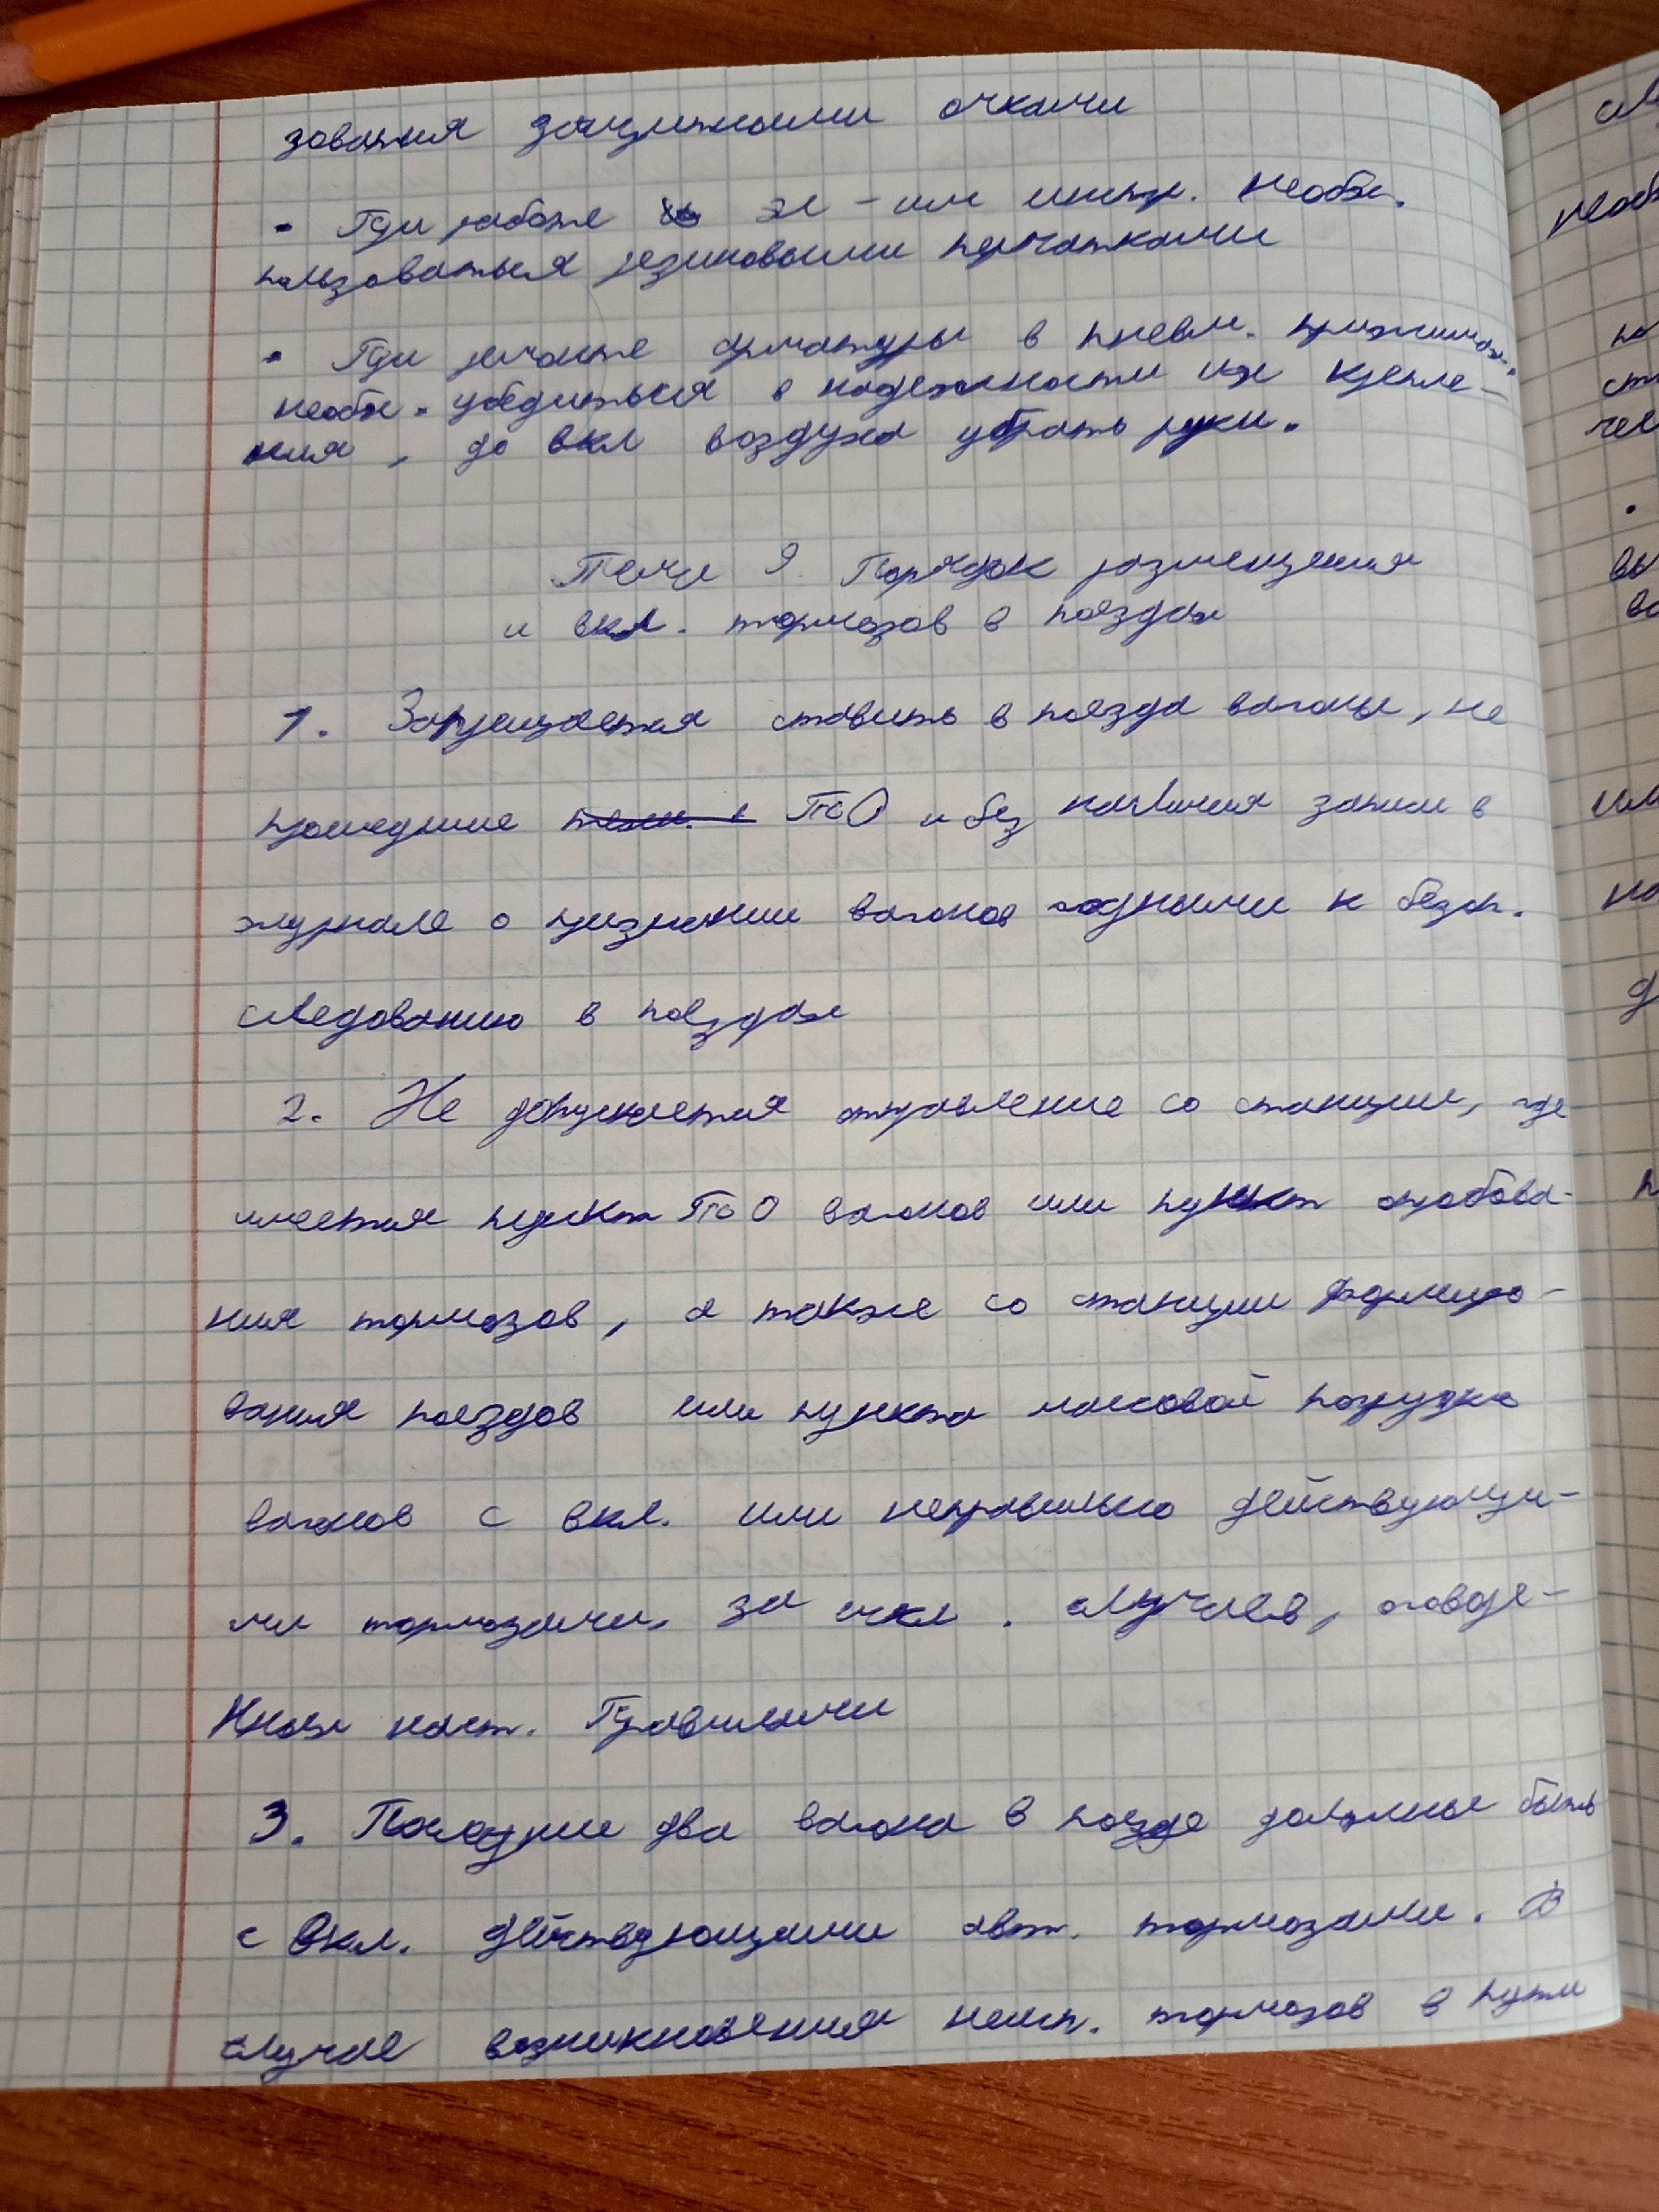 зования защитными очками
• При работе эл-им инстр. необх.
пользоваться резиновыми перчатками
• При зажате арматуры в пневм. прижимах,
необх. убедиться в надежности их крепле-
ния, до вкл воздуха убрать руки.
Тема 9. Порядок размещения
и вкл. тормозов в поездах
1. Запрещается ставить в поезда вагоны, не
прошедшие ТО и без наличия записи в
журнале о признании вагонов годными к безоп.
следованию в поездах
2. Не допускается отправление со станции, где
имеется пункт ТО вагонов или пункт опробова-
ния тормозов, а также со станции формиро-
вания поездов или пункта массовой погрузка
вагонов с вкл. или неправильно действующи-
ми тормозами, за искл. случаев, оговоре-
нных наст. Правилами
3. Последние два вагона в поезде должны быть
с Вкл. действующими авт. тормозами. В
случае возникновения неисп. тормозов в пути
необ
на
ст
чел
•
вы
на